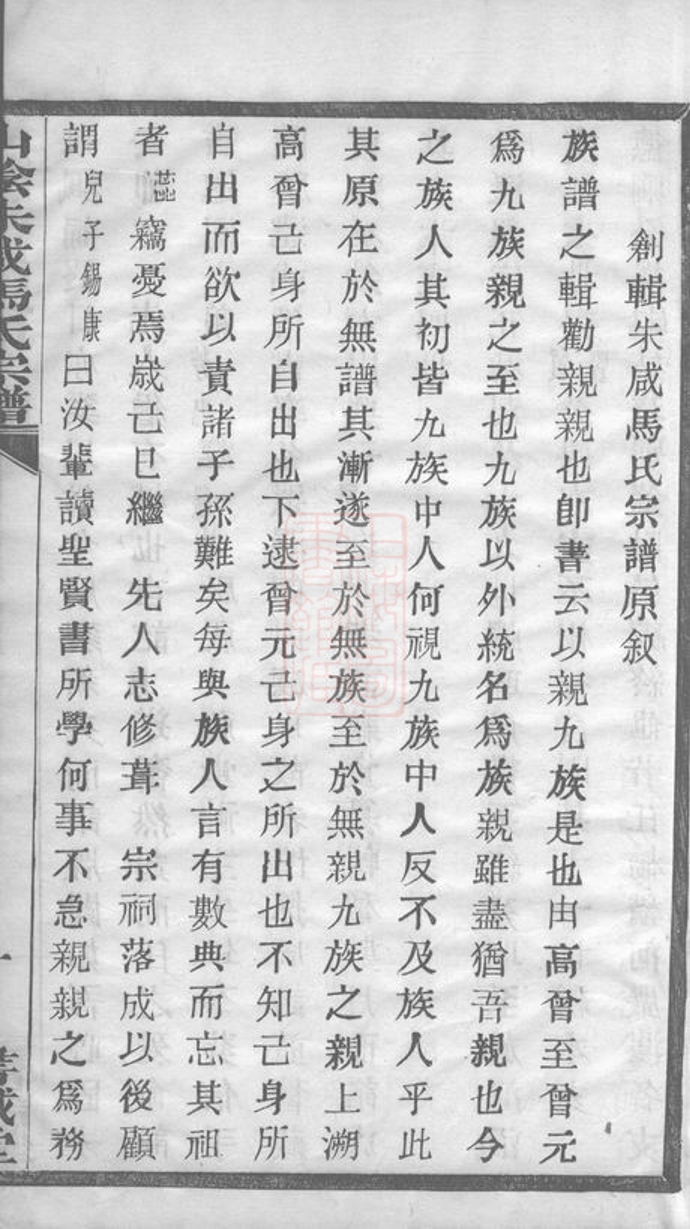 創輯朱咸馬氏宗譜原叙
族譜之輯勸親親也卽書云以親九族是也由高曾至曾元
爲九族親之至也九族以外統名爲族親雖盡猶吾親也今
之族人其初皆九族中人何視九族中人反不及族人乎此
其原在於無譜其漸遂至於無族至於無親九族之親上溯
高曾己身所自出也下逮曾元己身之所出也不知己身所
自出而欲以責諸子孫難矣每與族人言有數典而忘其祖
者蕋竊憂焉歲己巳繼 先人志修葺 宗祠落成以後顧
謂兒子錫康曰汝輩讀聖賢書所學何事不急親親之爲務
山陰朱咸馬氏宗譜 一